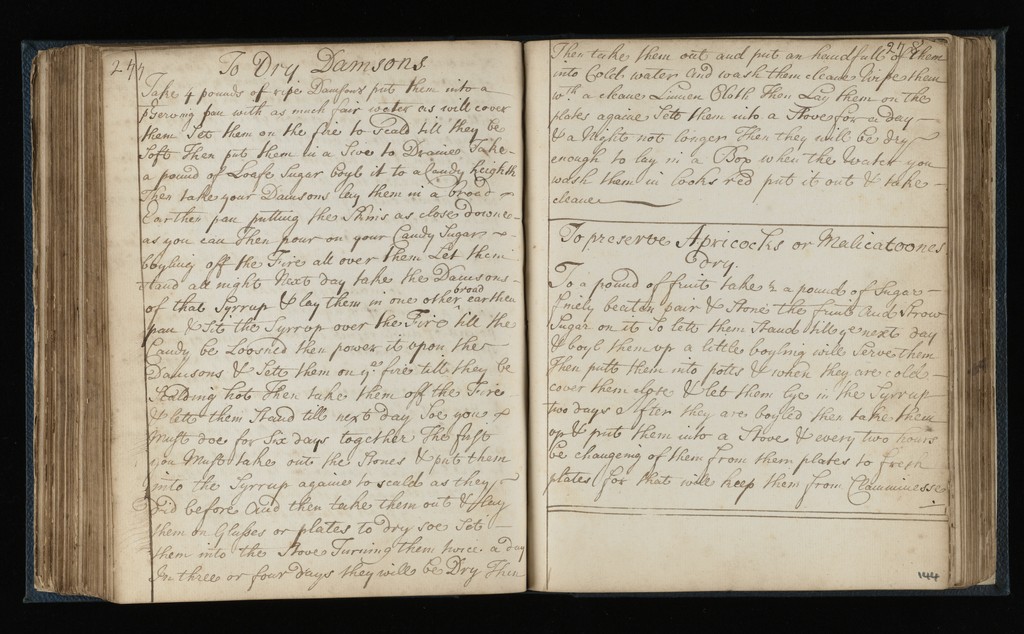 247
To Dry Damsons
Take 4 pounds of ripe Damsons put them into a
pserving pan with as much fair water as will cover
them Set them on the fire to Scald till they be
Soft Then put them in a Sive to Draine Take
a pound of Loafe Sugar boyl it to a Candy heighth
Then take your Damsons lay them in a broad
Earthen pan putting the Skins as close downe
as you can Then pour on your Candy Sugar
boyling off the Fire all over them Let them
stand all night Next day take the Damsons
of that Syrrup & lay them in one other broad earthen
pan & Set the Syrrup over the Fire till the
Candy be Loosned then power it upon the
Damsons & Sett them on ye fire till they be
Scalding hot Then take them off the Fire
& lett them Stand till next day Soe you
Must doe for Six days together The first
you Must take out the Stones & put them
into the Syrrup againe to scald as they
Did before And then take them out & lay
them on Glasses or plates to dry soe Set
them into the Stove Turning them twice a day
In three or four days they will be Dry Then
248
Then take them out and put an handfull of them
into Cold water And wash them cleane Wipe them
wth a cleane Linnen Cloth Then Lay them on the
plates againe Sett them into a Stove for a day
& a Night not longer Then they will be dry
enough to lay in a Box when the Water you
wash them in looks red put it out & take
cleane
To preserve Apricocks or Malicatoones
dry.
To a pound of fruit take a pound of Sugar
finely beaten pair & Stone the fruit And Strow
Sugar on it So lett them Stand till ye next day
& boyl them up a little boyling will Serve them
Then putt them into potts & when they are cold
cover them close & let them lye in the Syrrup
two days After they are boyled then take them
up & put them into a Stove & every two hours
be changeing of them from them plates to fresh
plates (for that will keep them from Clamminesse
144